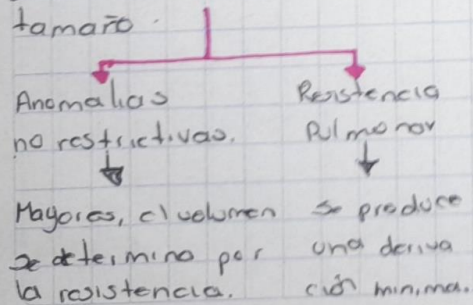 tamaño.
Anomalias
no restrictivas.
Mayores, el volumen
se determina por
la resistencia.
Resistencia
Pulmonar
se produce
una deriva
ción minima.